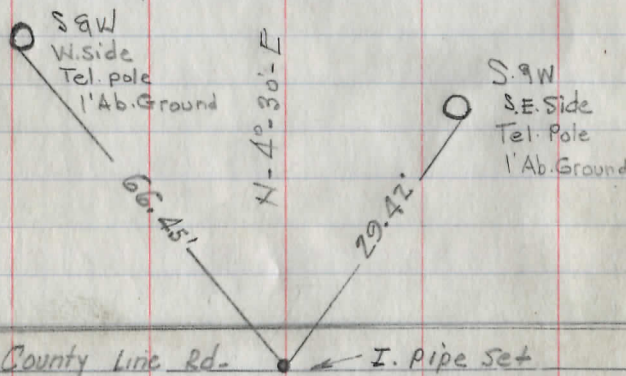 S&W
W. side
Tel. pole
1' Ab. Ground
N-4°-30'-E
S.&W
S.E. Side
Tel. Pole
1' Ab. Ground
66.45'
29.42'
County Line Rd.
I. pipe set